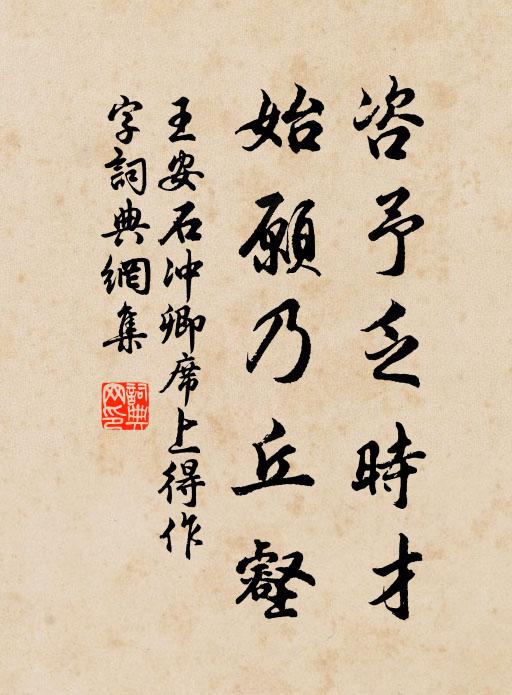 咨予乏時才
始願乃丘壑
王安石沖卿席上得作
字詞典網集
詞典网印